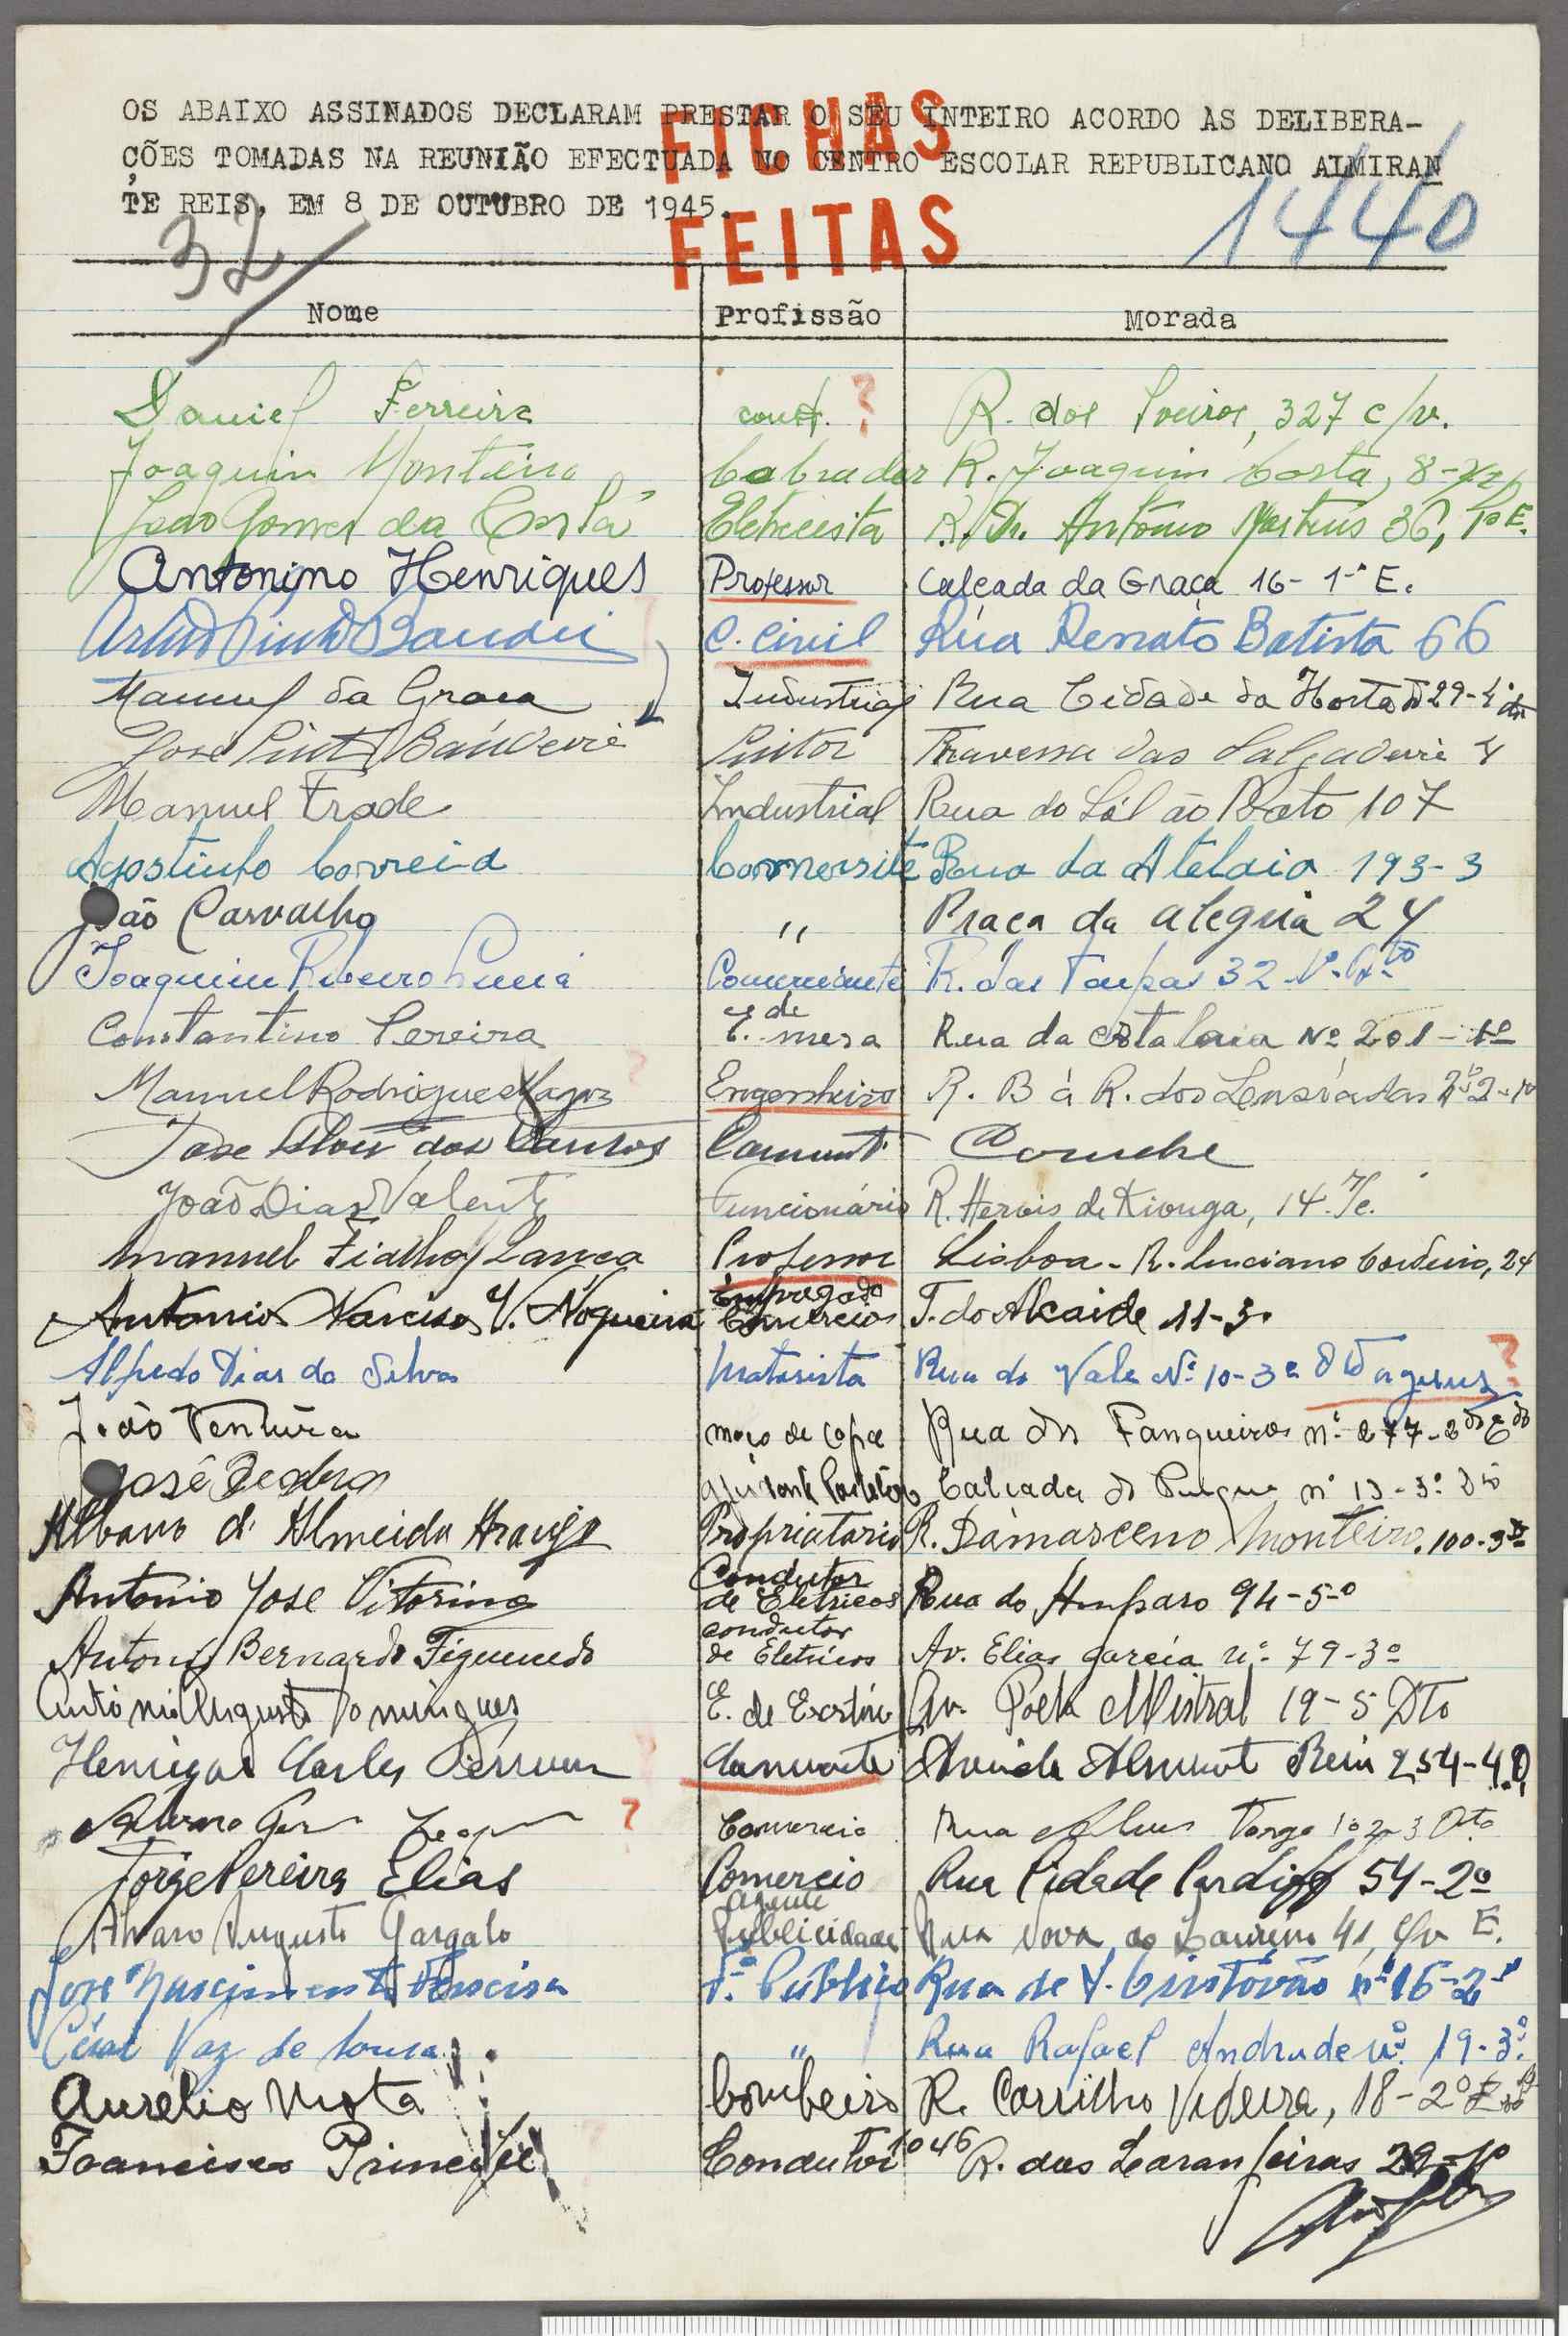 OS ABAIXO ASSINADOS DECLARAM PRESTAR O SEU INTEIRO ACORDO AS DELIBERA-
ÇÕES TOMADAS NA REUNIÃO EFECTUADA NO CENTRO ESCOLAR REPUBLICANO ALMIRAN
TE REIS, EM 8 DE OUTUBRO DE 1945.
FICHAS
FEITAS
32
1440
Nome Profissão Morada
Daniel Ferreira ? R. dos Soeiros, 327 c/v.
Joaquim Monteiro Cobrador R. Joaquim Costa, 8-
João Gomes da Costa Eletricista R. Dr. António Martins 36, 1º E.
Antonino Henriques Professor Calçada da Graça 16-1º E.
C. Civil Rua Renato Batista 66
Manuel da Graça Industrial Rua Cidade da Horta 29-4º
José Pinto Bandeira Pintor Travessa das Salgadeiras 4
Manuel Frade Industrial Rua do Sol ao Rato 107
Agostinho Correia Rua da Atalaia 193-3
João Carvalho " Praça da alegria 24
Joaquim Ribeiro Comerciante R. das Taipas 32
Constantino Pereira E. de mesa Rua da Atalaia Nº 201-1º
Manuel Rodrigues Engenheiro R. B à R. dos
José dos Santos Coruche
João Dias Valente Funcionário R. Herois de Kionga, 14
Manuel Fialho Lança Professor Lisboa - R. Luciano Cordeiro, 24
Antonio Narciso V. Nogueira Empregado Comercio T. do Alcaide 11-3º
Alfredo Dias da Silva Motorista Rua do Vale Nº 10-3º ?
João Ventura moço de copa Rua dos Fanqueiros nº 277-2º
José Pedro Calçada do nº 13-3º
Albano de Almeida Araujo Propriatario R. Damasceno Monteiro, 100-3º
Antonio José Vitorino Condutor de Eletricos Rua do Amparo 94-5º
Antonio Bernardo Figueiredo condutor de Eletricos Av. Elias Garcia nº 79-3º
António Augusto Domingues E. de Av. Poeta Mistral 19-5 Dto
Henrique Carlos 254-4.D.
Alvaro ? Comercio Rua
Jorge Pereira Elias Comercio Rua Cidade Cardiff 54-2º
Alvaro Augusto Gargalo agente Publicidade Rua Nova do 41, E.
José Nascimento F. Publico Rua de S. Cristovão nº 16-2º
César Vaz de Sousa " Rua Rafael Andrade nº 19-3º
Aurelio Mota bombeiro R. Carrilho Videira, 18-2º
Francisco Principe Condutor 1046 R. das Laranjeiras 29-1º